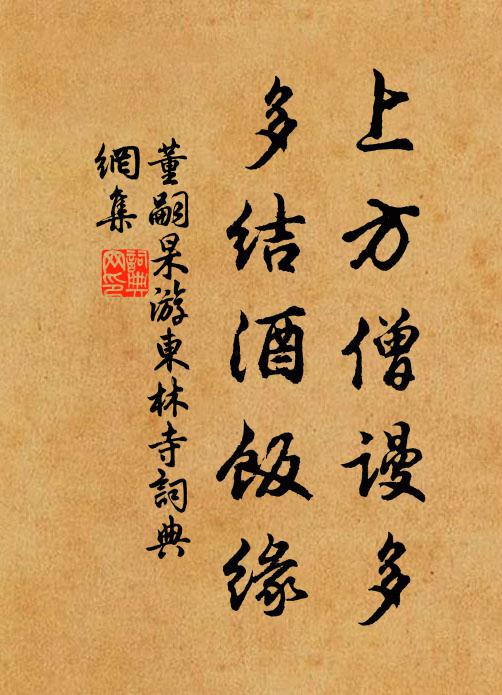 上方僧谩多
多结酒飯缘
董嗣杲游東林寺詞典
網集
詞典網印